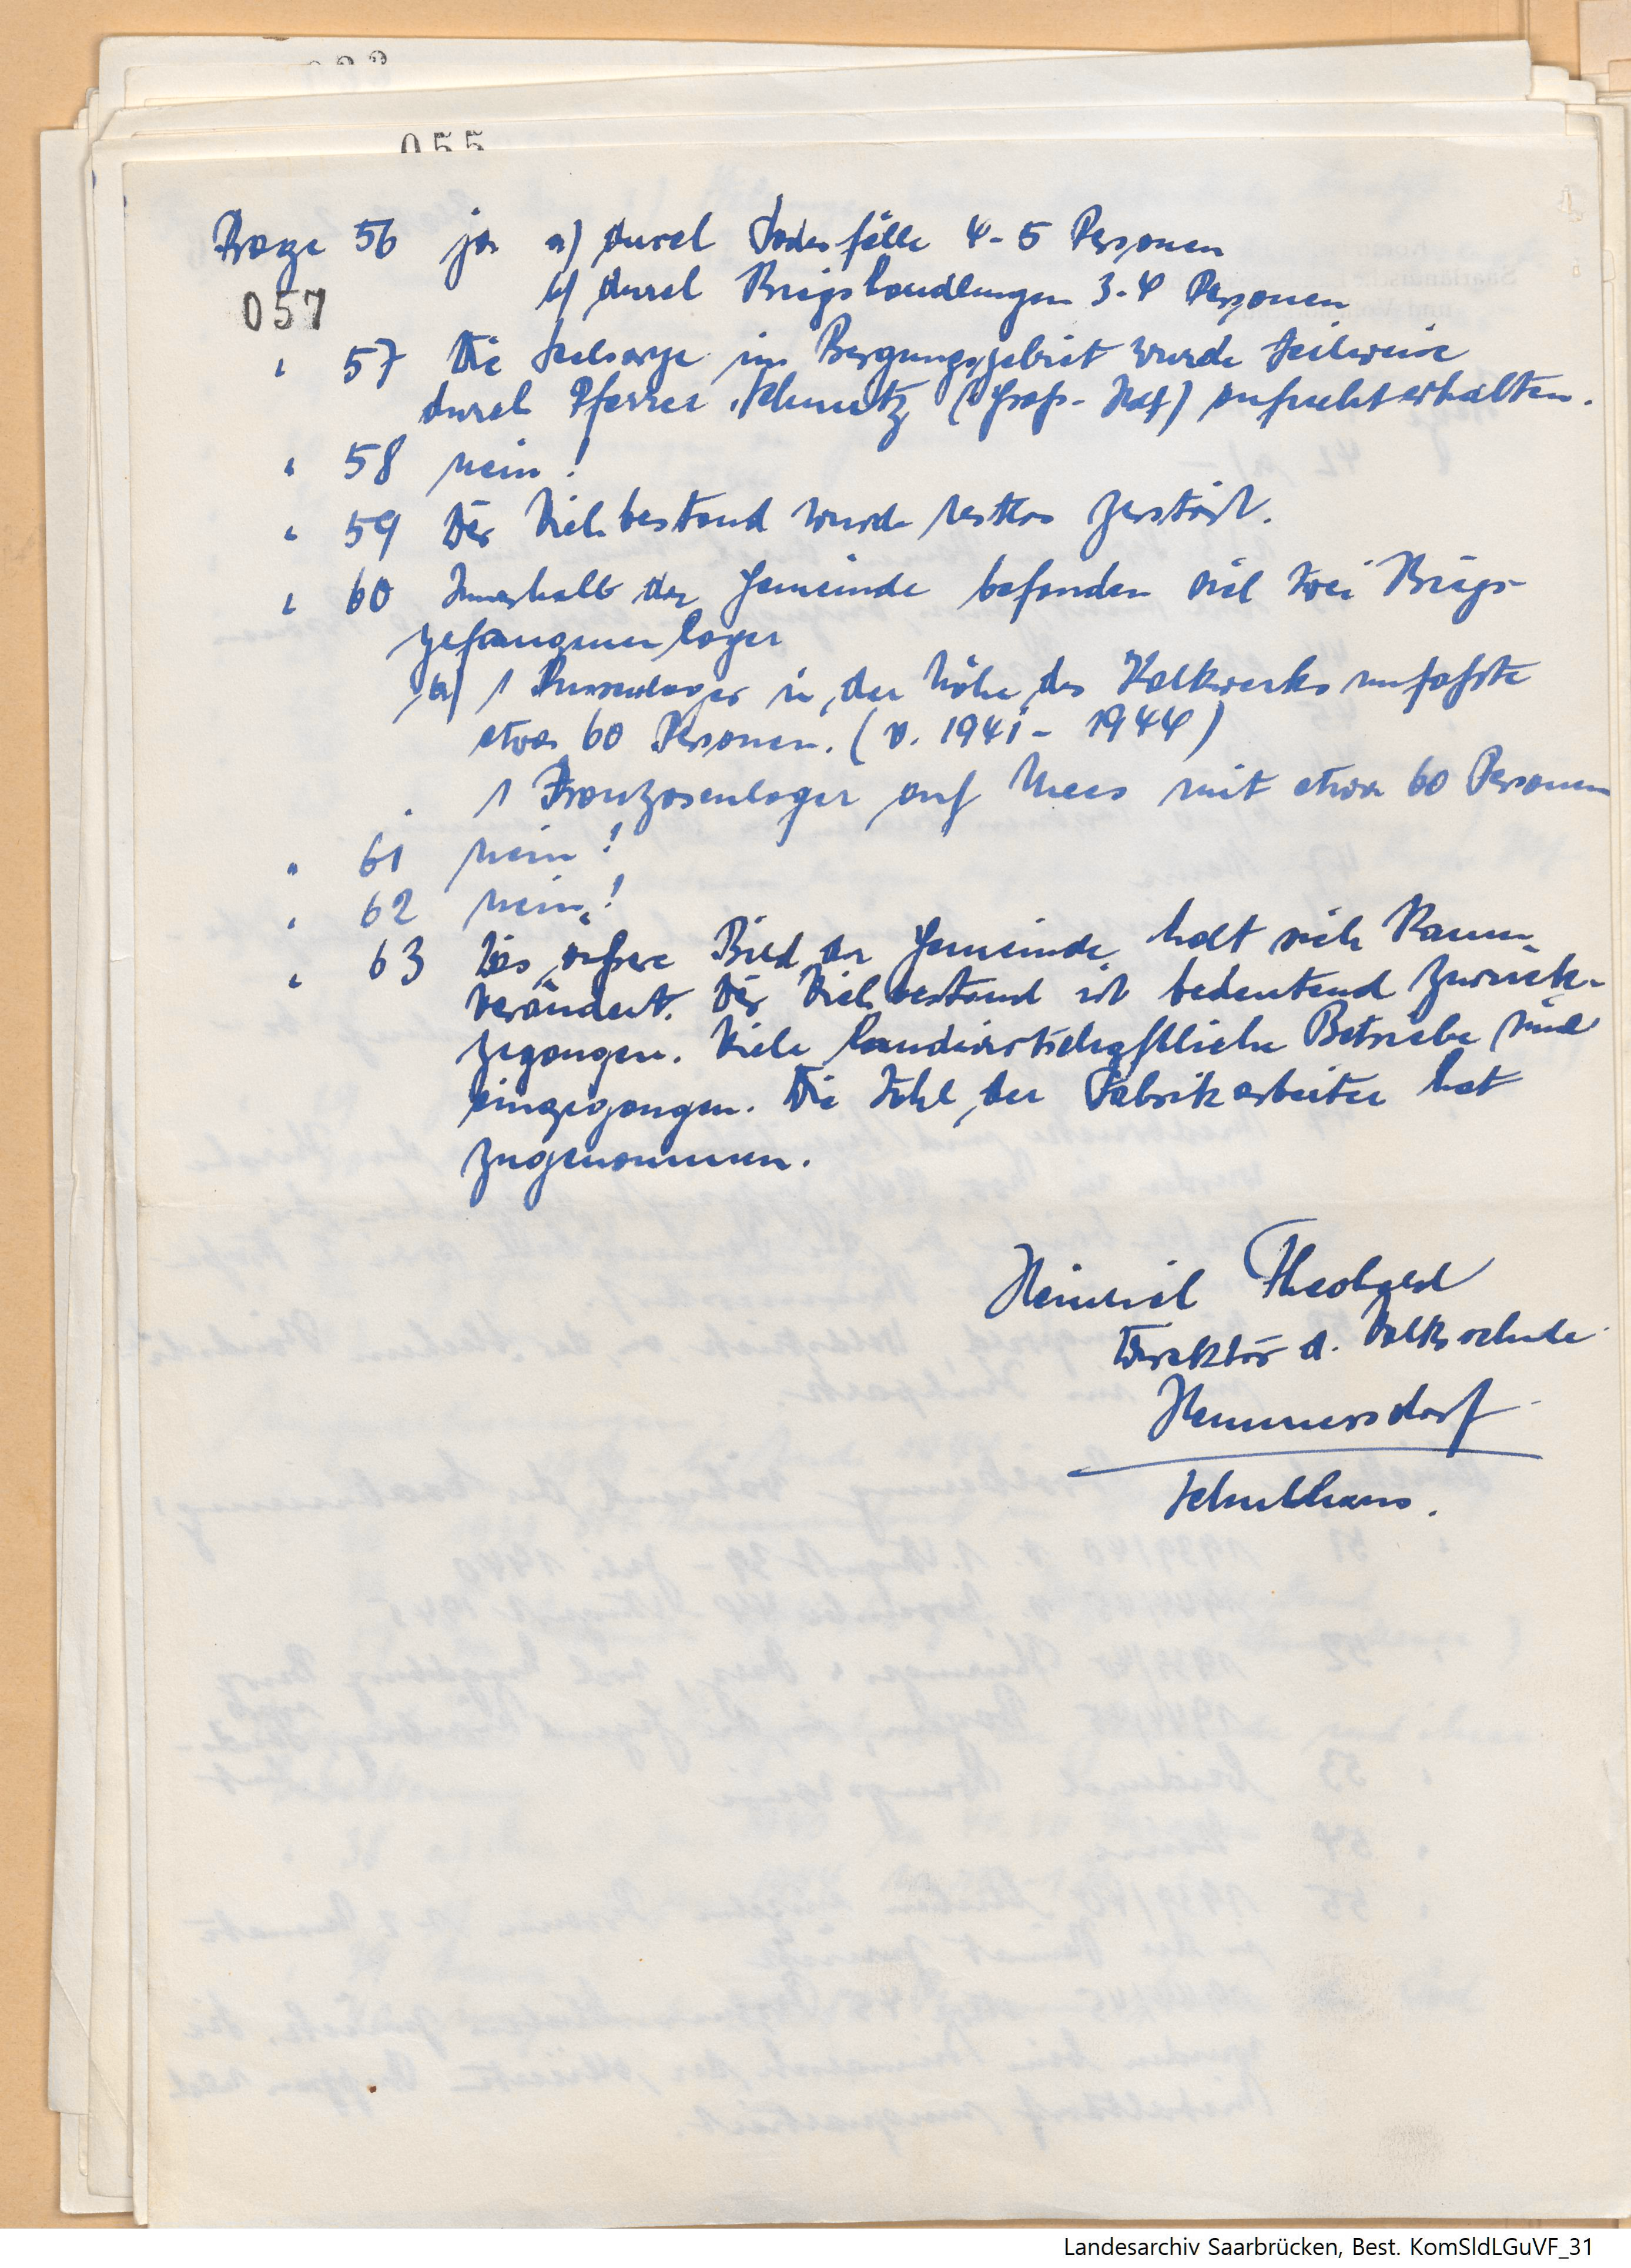 055
Frage 56 ja a) durch Todesfälle 4-5 Personen
b) durch Kriegshandlungen 3-4 Personen
057
" 57 Die Seelsorge im Bergungsgebiet wurde teilweise
durch Pfarrer Schmitz (Groß- ) aufrechterhalten.
" 58 nein!
" 59 Der Viehbestand wurde restlos zerstört.
" 60 Innerhalb der Gemeinde befanden sich zwei Kriegs-
gefangenenlager
a) 1 Russenlager in der Höhe des Kalkwerks umfaßte
etwa 60 Personen. (v. 1941 - 1944)
1 Franzosenlager auf mit etwa 60 Personen
" 61 nein!
" 62 nein!
" 63 Das äußere Bild der Gemeinde hat sich kaum
verändert. Der Viehbestand ist bedeutend zurück-
gegangen. Viele landwirtschaftliche Betriebe sind
eingegangen. Die Zahl der Fabrikarbeiter hat
zugenommen.
Heinrich Theobald
Direktor d. Volksschule
Hemmersdorf
Schulhaus.
Landesarchiv Saarbrücken, Best. KomSldLGuVF_31